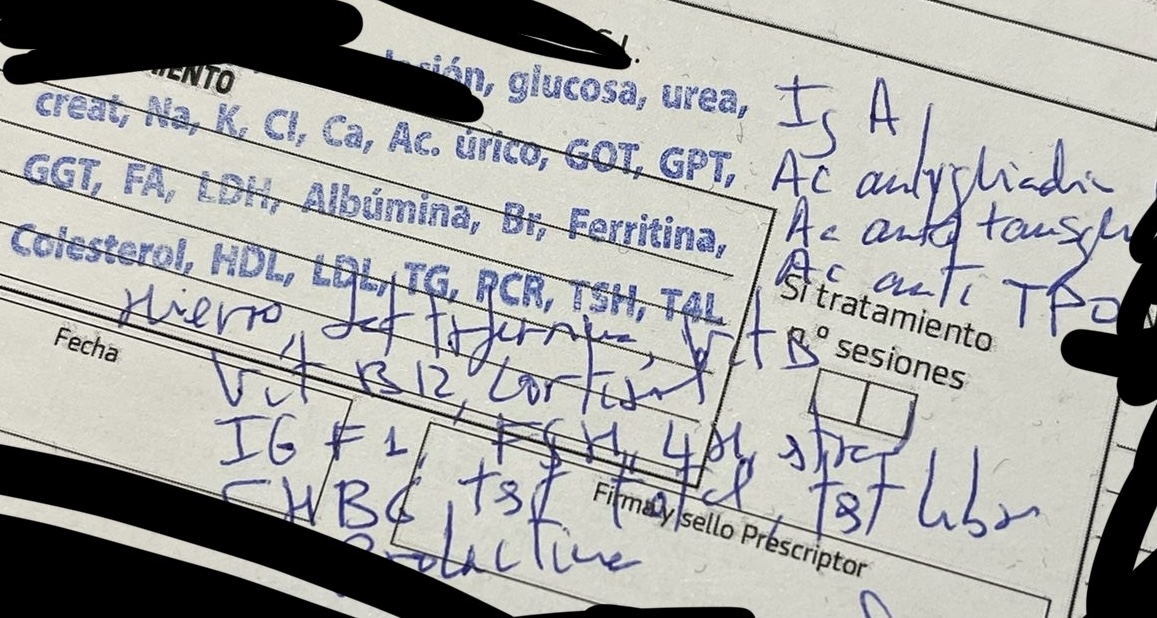 S.I.
IENTO
glucosa, urea,
creat, Na, K, Cl, Ca, Ac. úrico, GOT, GPT,
GGT, FA, LDH, Albúmina, Br, Ferritina,
Colesterol, HDL, LDL, TG, RCR, TSH, T4L
Ig A
Ac antygliadin
Ac anti
Ac anti TPO
Hierro,
Vit B12, Cortisol
IGF1, FSH, LH,
SHBG, tst total, tst libre
Prolactina
Si tratamiento
n.º sesiones
Fecha
Firma y sello Prescriptor